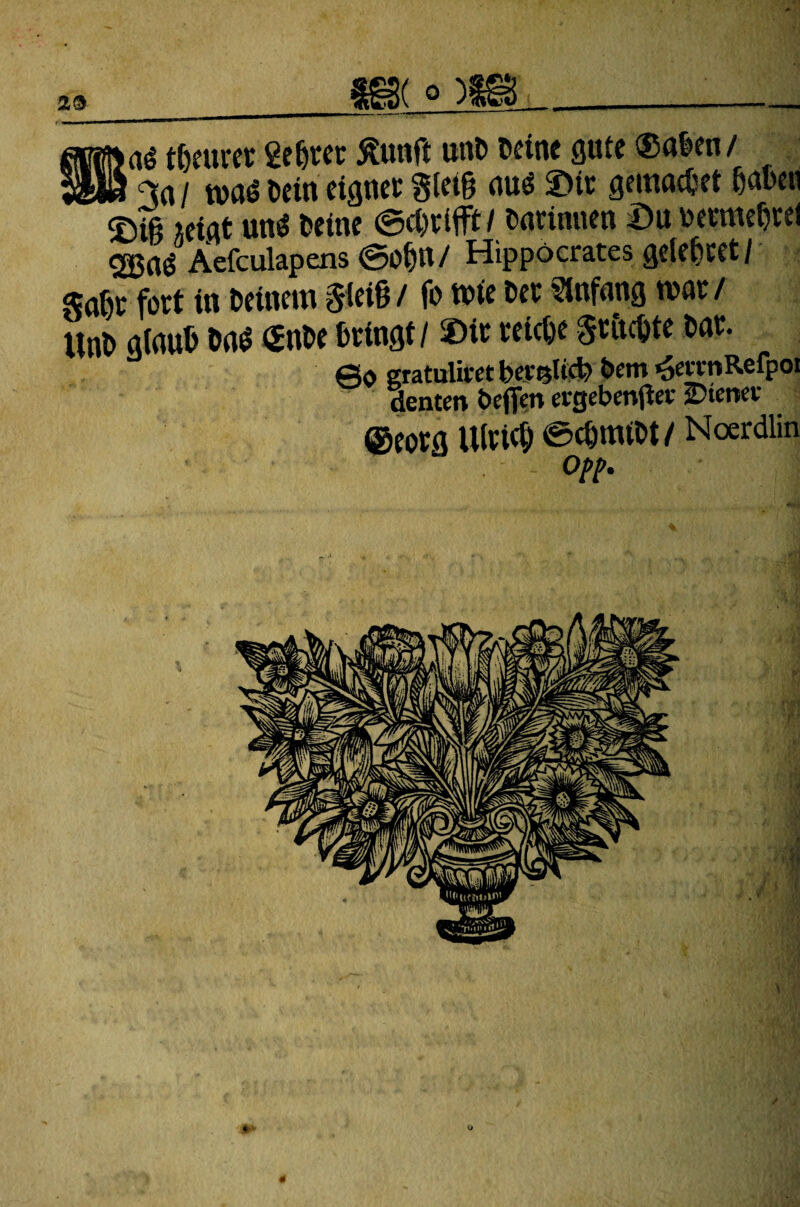 20 ( o )
Was theurer Lehrer Kunst und deine gute Gaben /
Ja / was dein eigner Fleiß aus Dir gemachet haben
Diß zeigt uns deine Schrifft / darinnen Du vermehrel
Was Aeſculapens Sohn / Hippocrates gelehret /
Fahr fort in deinem Fleiß / so wie der Anfang war /
Und glaub das Ende bringt / Dir reiche Früchte dar.
So gratuliret hertzlich dem HerrnReſpoi
denten deſſen ergebenſter Diener
Georg Ulrich Schmidt / Noerdlin
Opp.